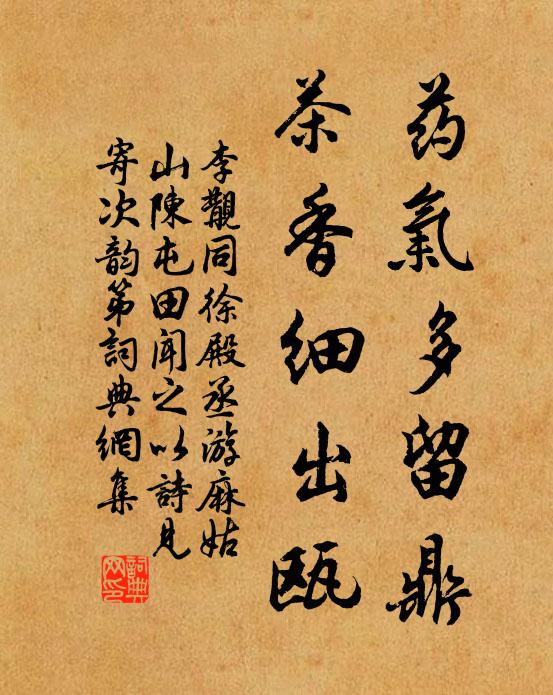 药氣多留鼎
茶香細出甌
李覯同徐殿丞游麻姑
山陳屯田聞之以詩見
寄次韵第詞典網集
詞典网印